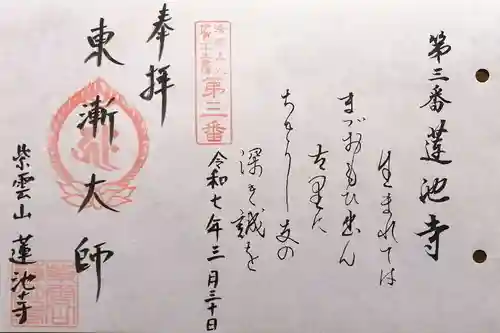 第三番蓮池寺
生まれては
まづおもひ出ん
古里に
ちぎりし友の
深き誠を
令和七年三月三十日
第三番
奉拝
東漸大師
紫雲山 蓮池寺